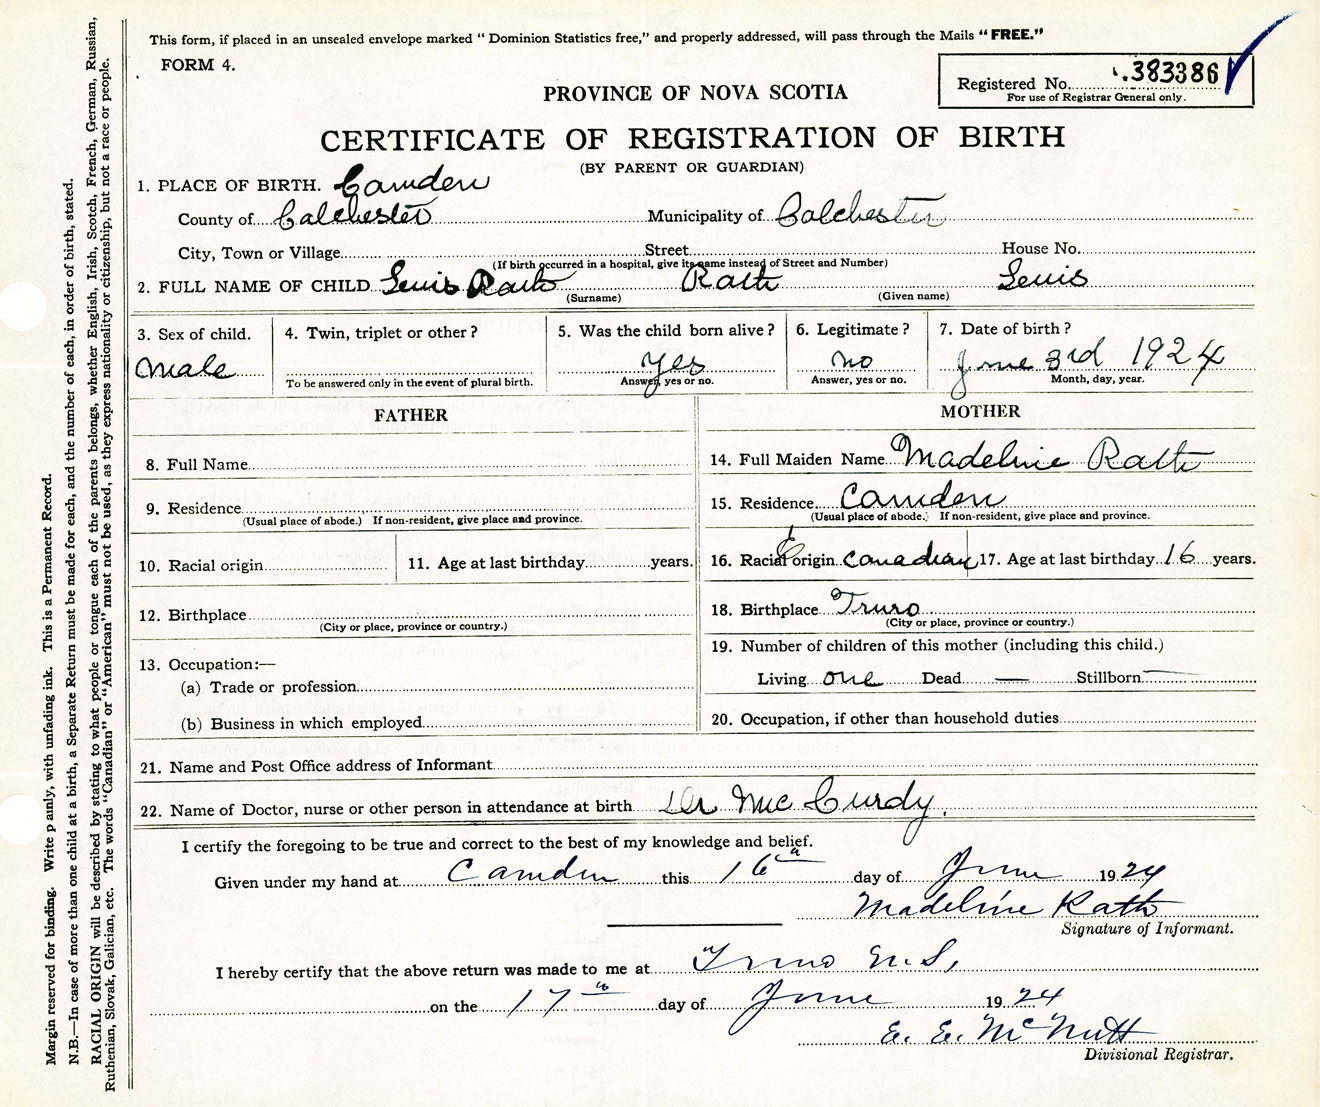 This form, if placed in an unsealed envelope marked "Dominion Statistics free," and properly addressed, will pass through the Mails "FREE."
FORM 4.
Registered No. 383386
For use of Registrar General only.
PROVINCE OF NOVA SCOTIA
CERTIFICATE OF REGISTRATION OF BIRTH
(BY PARENT OR GUARDIAN)
1. PLACE OF BIRTH. Camden
County of Colchester Municipality of Colchester
City, Town or Village Street House No.
(If birth occurred in a hospital, give its name instead of Street and Number)
2. FULL NAME OF CHILD Lewis Rath Rath Lewis
(Surname) (Given name)
3. Sex of child. 4. Twin, triplet or other? 5. Was the child born alive? 6. Legitimate? 7. Date of birth?
Male yes no June 3rd 1924
To be answered only in the event of plural birth. Answer, yes or no. Answer, yes or no. Month, day, year.
FATHER MOTHER
8. Full Name 14. Full Maiden Name Madeline Rath
9. Residence 15. Residence Camden
(Usual place of abode.) If non-resident, give place and province. (Usual place of abode.) If non-resident, give place and province.
10. Racial origin 11. Age at last birthday years. 16. Racial origin E Canadian 17. Age at last birthday 16 years.
12. Birthplace 18. Birthplace Truro
(City or place, province or country.) (City or place, province or country.)
13. Occupation:— 19. Number of children of this mother (including this child.)
(a) Trade or profession Living one Dead — Stillborn —
(b) Business in which employed 20. Occupation, if other than household duties
21. Name and Post Office address of Informant
22. Name of Doctor, nurse or other person in attendance at birth Dr McCurdy.
I certify the foregoing to be true and correct to the best of my knowledge and belief.
Given under my hand at Camden this 16th day of June 1924
Madeline Rath
Signature of Informant.
I hereby certify that the above return was made to me at Truro N.S,
on the 17th day of June 1924
E. E. McNutt
Divisional Registrar.
Margin reserved for binding. Write p ainly, with unfading ink. This is a Permanent Record.
N.B.—In case of more than one child at a birth, a Separate Return must be made for each, and the number of each, in order of birth, stated.
RACIAL ORIGIN will be described by stating to what people or tongue each of the parents belongs, whether English, Irish, Scotch, French, German, Russian,
Ruthenian, Slovak, Galician, etc. The words "Canadian" or "American" must not be used, as they express nationality or citizenship, but not a race or people.